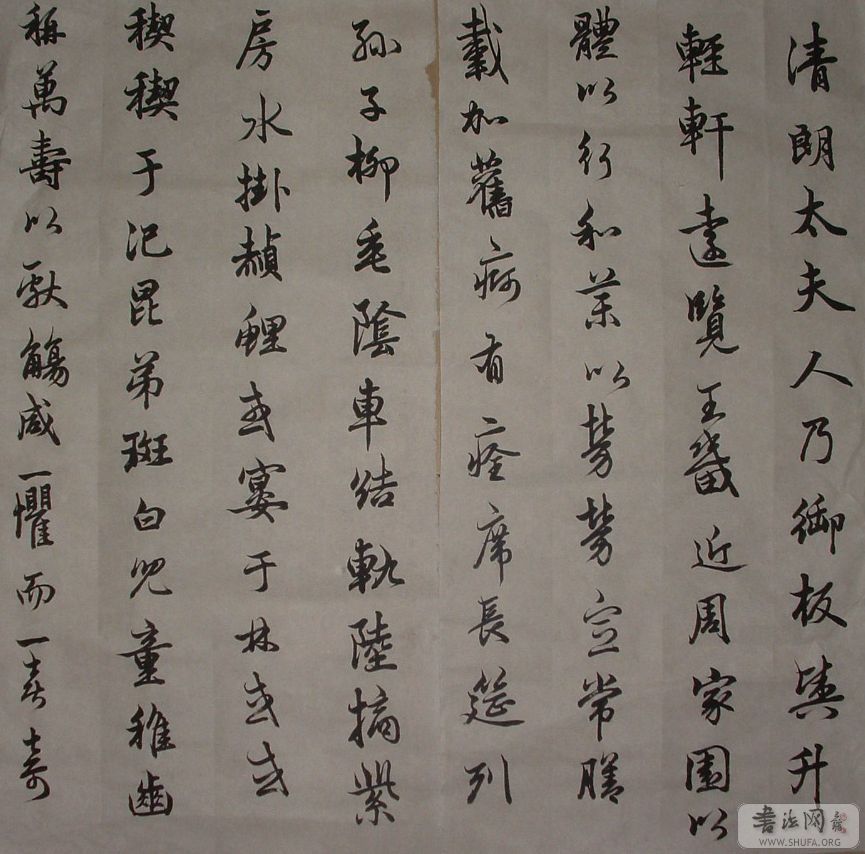 清朗太夫人乃御板輿升
輕軒遠覽王畿近周家園以
體以行和藥以勞勞宣常膳
載加舊痾有痊席長筵列
孫子柳垂陰車結軌陸摘紫
房水掛赬鯉或宴于林或或
禊禊于汜昆弟斑白兒童稚齒
稱萬壽以獻觴咸一懼而一喜壽
书法网
WWW.SHUFA.ORG